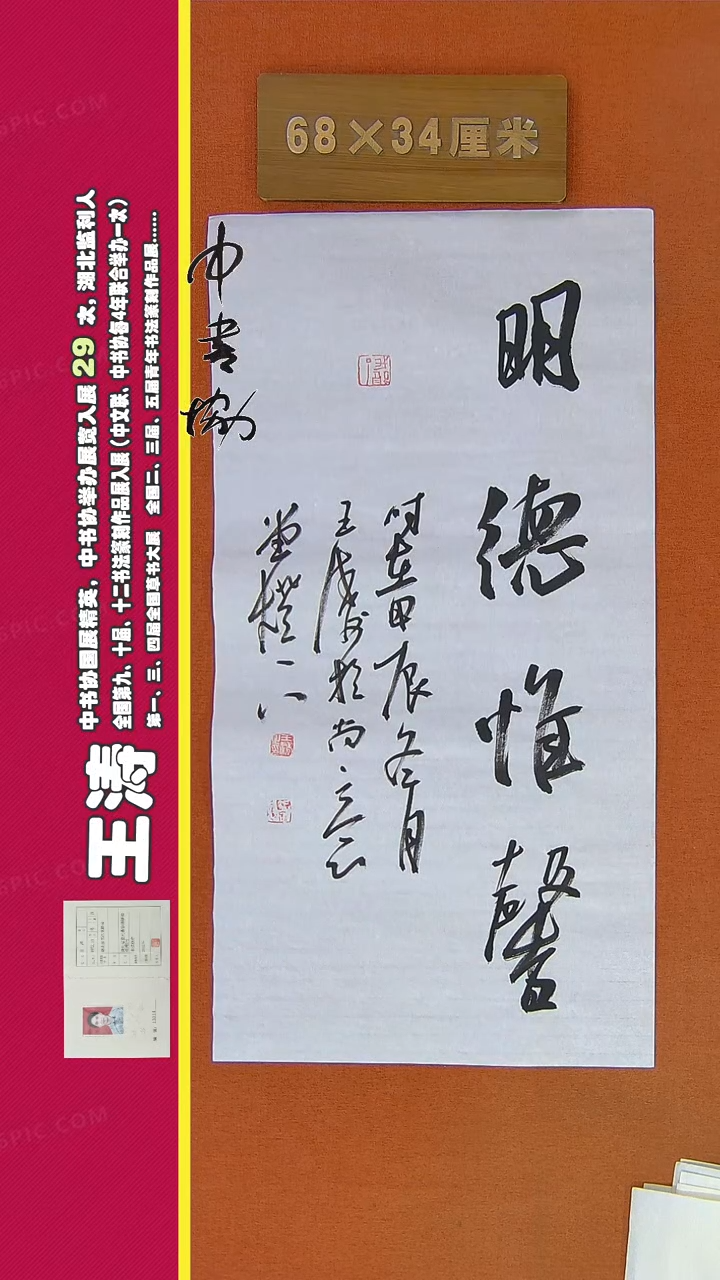 68×34厘米
中书协
明德惟馨
时在甲辰冬月
王涛书于尚
王涛
中书协国展精英，中书协举办展览入展 29 次，湖北监利人
全国第九、十届、十二书法篆刻作品展入展（中文联、中书协每4年联合举办一次）
第一、三、四届全国草书大展 全国二、三届、五届青年书法篆刻作品展……